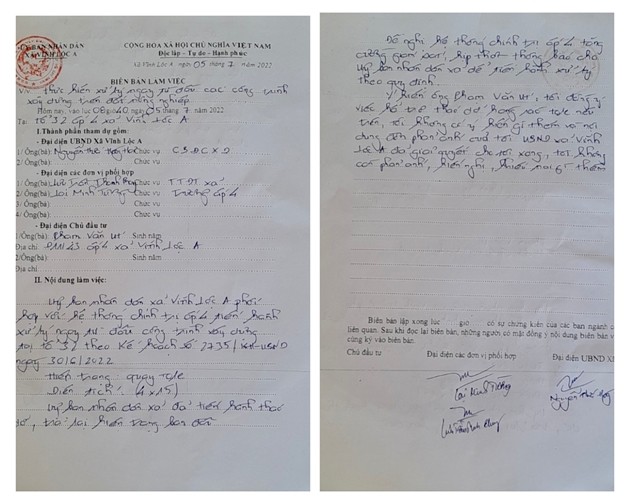 ỦY BAN NHÂN DÂN
XÃ VĨNH LỘC A
CỘNG HÒA XÃ HỘI CHỦ NGHĨA VIỆT NAM
Độc lập - Tự do - Hạnh phúc
Xã Vĩnh Lộc A, ngày 05 tháng 7 năm 2022
BIÊN BẢN LÀM VIỆC
V/v thực hiện xử lý ngay từ đầu các công trình
xây dựng trên đất nông nghiệp
Hôm nay, vào lúc 08 giờ 40 ngày 05 tháng 7 năm 2022
Tại tổ 32 ấp 4 xã Vĩnh Lộc A
I. Thành phần tham dự gồm:
- Đại diện UBND Xã Vĩnh Lộc A
1/ Ông(bà): Nguyễn Chức vụ CBĐCXD
2/ Ông(bà): Chức vụ
- Đại diện các đơn vị phối hợp
1/ Ông(bà): Chức vụ TTĐT xã
2/ Ông(bà): Lại Minh Chức vụ ấp 4
3/ Ông(bà): Chức vụ
4/ Ông(bà): Chức vụ
- Đại diện Chủ đầu tư
1/ Ông(bà): Phạm Văn Út Sinh năm
Địa chỉ: ấp 4 xã Vĩnh Lộc A
2/ Ông(bà): Sinh năm
Địa chỉ
II. Nội dung làm việc:
Uỷ ban nhân dân xã Vĩnh Lộc A phối
hợp với hệ thống chính trị ấp 4 tiến hành
xử lý ngay từ đầu công trình xây dựng
tại tổ 32 theo Kế hoạch số 2735/KH-UBND
ngày 30/6/2022
Hiện trạng: quay tole
Diện tích: (4x15)
Uỷ ban nhân dân xã đã tiến hành tháo
dỡ, trả lại hiện trạng ban đầu
Đề nghị hệ thống chính trị ấp 4 tăng
cường kịp thời thông báo cho
Uỷ ban nhân dân xã để tiến hành xử lý
theo quy định.
Ý kiến ông Phạm Văn Út, tôi đồng ý
việc hỗ trợ tháo dỡ tole nêu
trên, tôi không có ý kiến gì thêm và nội
dung đơn phản ánh của tôi UBND xã Vĩnh
Lộc A đã giải quyết cho tôi xong, tôi không
có phản ánh, kiến nghị, khiếu nại gì thêm
Biên bản lập xong lúc giờ có sự chứng kiến của các ban ngành có
liên quan. Sau khi đọc lại biên bản, những người có mặt đồng ý nội dung biên bản và
cùng ký vào biên bản.
Chủ đầu tư Đại diện các đơn vị phối hợp Đại diện UBND X